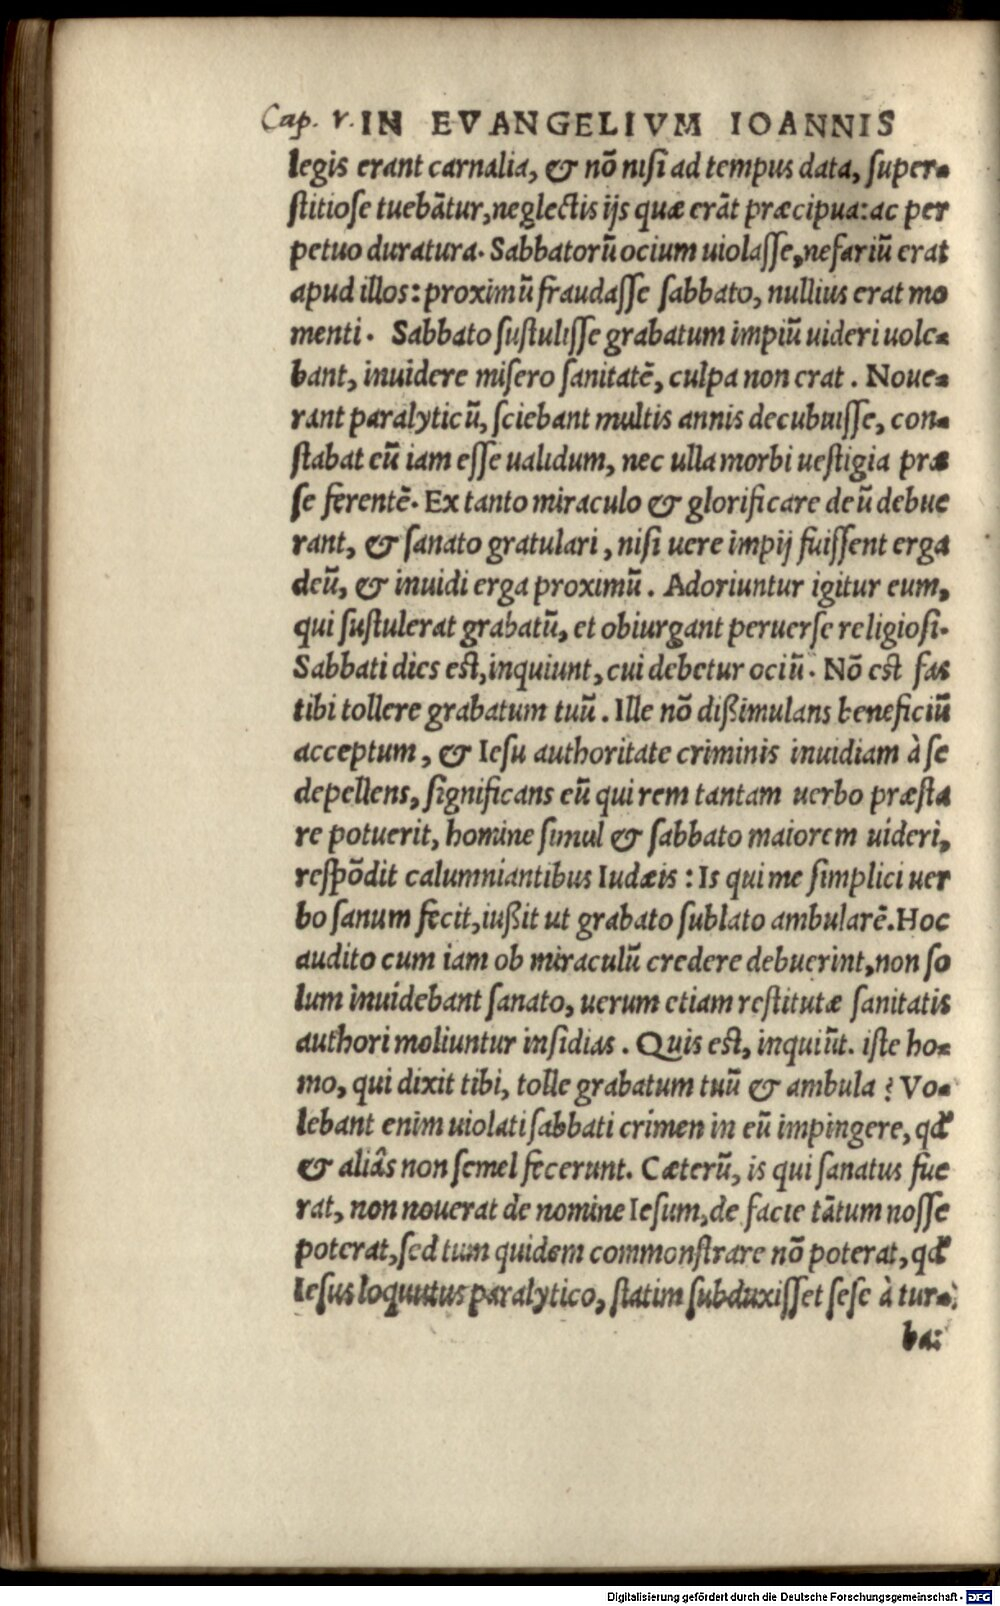 Cap. v. IN EVANGELIVM IOANNIS
legis erant carnalia, & nõ nisi ad tempus data, super-
stitiose tuebãtur, neglectis ijs quæ erãt præcipua: ac per
petuo duratura. Sabbatorũ ocium uiolasse, nefariũ erat
apud illos: proximũ fraudasse sabbato, nullius erat mo
menti. Sabbato sustulisse grabatum impiũ uideri uole-
bant, inuidere misero sanitatẽ, culpa non erat. Noue-
rant paralyticũ, sciebant multis annis decubuisse, con-
stabat eũ iam esse ualidum, nec ulla morbi uestigia præ
se ferentẽ. Ex tanto miraculo & glorificare deũ debue
rant, & sanato gratulari, nisi uere impij fuissent erga
deũ, & inuidi erga proximũ. Adoriuntur igitur eum,
qui sustulerat grabatũ, et obiurgant peruerse religiosi.
Sabbati dies est, inquiunt, cui debetur ociũ. Nõ est fas
tibi tollere grabatum tuũ. Ille nõ dißimulans beneficiũ
acceptum, & Iesu authoritate criminis inuidiam à se
depellens, significans eũ qui rem tantam uerbo præsta
re potuerit, homine simul & sabbato maiorem uideri,
respõdit calumniantibus Iudæis: Is qui me simplici uer
bo sanum fecit, iußit ut grabato sublato ambularẽ. Hoc
audito cum iam ob miraculũ credere debuerint, non so
lum inuidebant sanato, uerum etiam restitutæ sanitatis
authori moliuntur insidias. Quis est, inquiũt. iste ho-
mo, qui dixit tibi, tolle grabatum tuũ & ambula? Vo-
lebant enim uiolati sabbati crimen in eũ impingere, qđ
& aliâs non semel fecerunt. Cæterũ, is qui sanatus fue
rat, non nouerat de nomine Iesum, de facie tãtum nosse
poterat, sed tum quidem commonstrare nõ poterat, qđ
Iesus loquutus paralytico, statim subduxisset sese à tur-
ba:
Digitalisierung gefördert durch die Deutsche Forschungsgemeinschaft - DFG